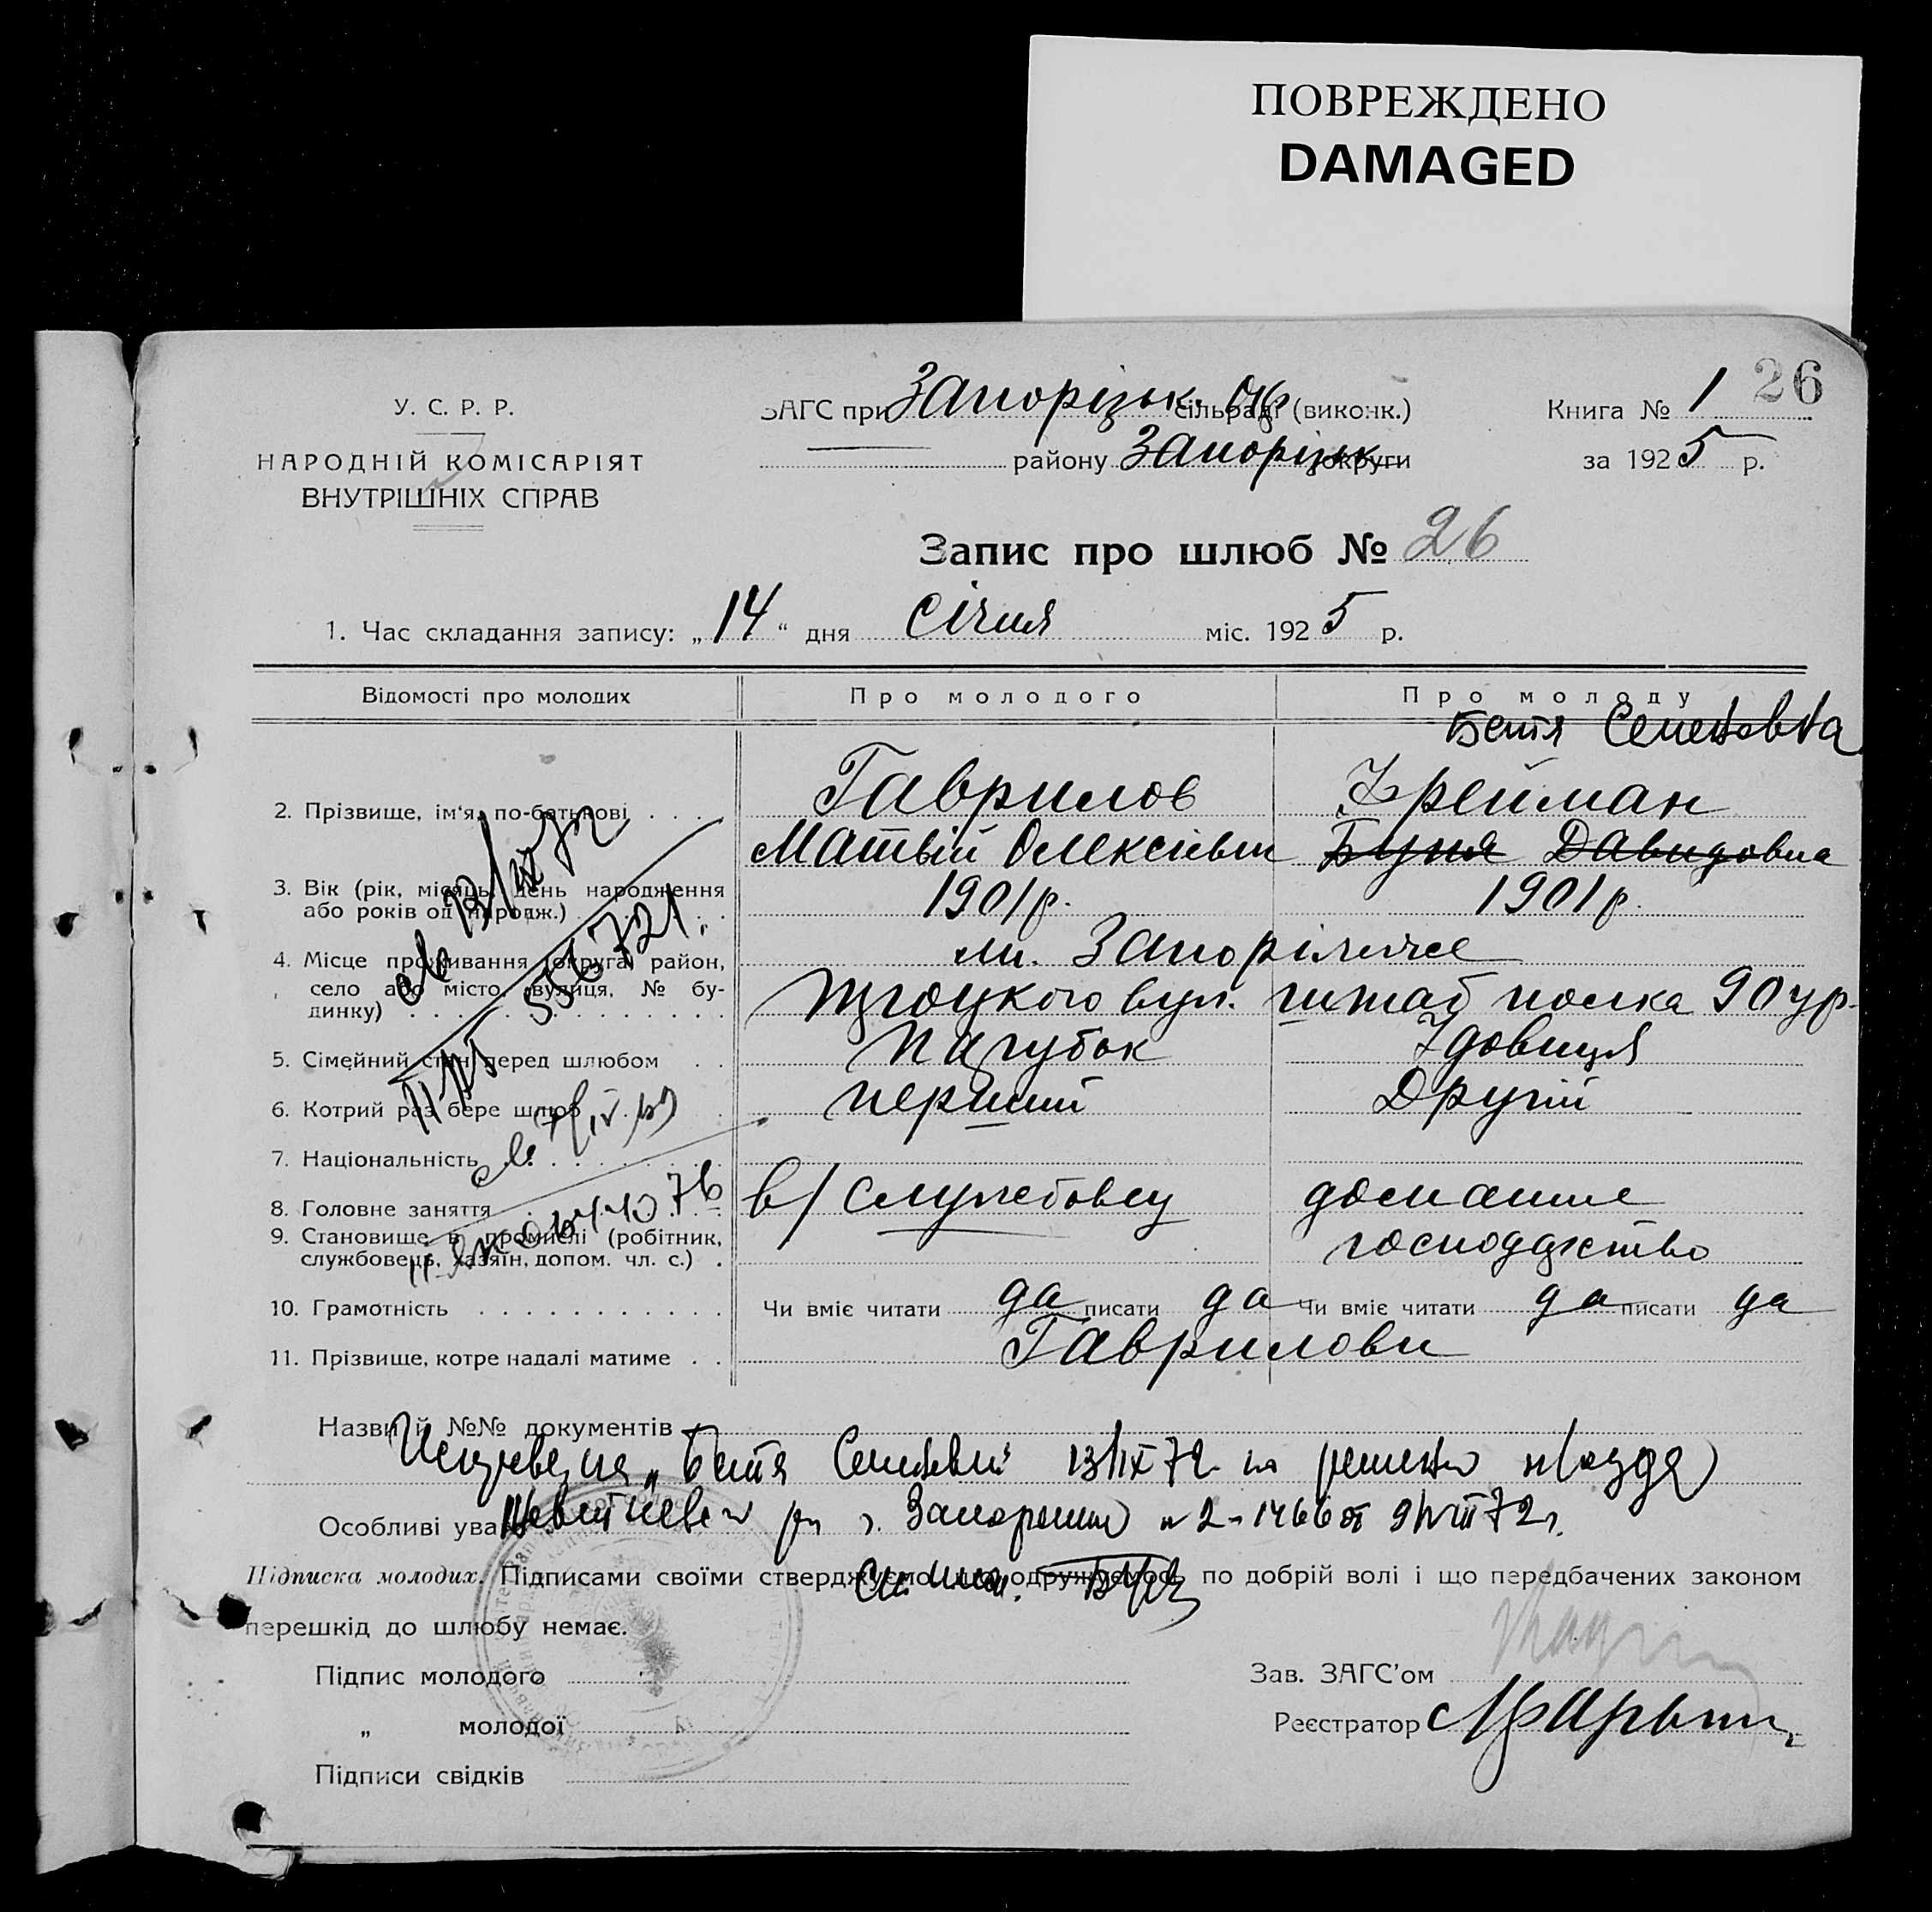 ПОВРЕЖДЕНО
DAMAGED
26
У. С. Р. Р.
НАРОДНІЙ КОМІСАРІЯТ
ВНУТРІШНІХ СПРАВ
ЗАГС при Запорізьк. сільраді (виконк.)
району Запорізьк округи
Книга № 1
за 1925 р.
Запис про шлюб № 26
1. Час складання запису: „14“ дня січня міс. 1925 р.
Відомості про молодих
Про молодого
Про молоду
Бетя Семеновна
2. Прізвище, ім'я, по-батькові . . . .
Гаврилов
Фрейман
Матвій Олексієвич
Буня Давидовна
3. Вік (рік, місяць, день народження
або років од народж.)
1901 р.
1901 р.
4. Місце проживання (округа, район,
село або місто, вулиця, № бу-
динку)
м. Запоріжжє
Троцкого вул. штаб полка 90
5. Сімейний стан перед шлюбом . .
Парубок
Удовиця
6. Котрий раз бере шлюб
перший
Другий
7. Національність
8. Головне заняття
в/службовец
домашне
9. Становище в промислі (робітник,
службовець, хазяїн, допом. чл. с.) .
господарство
10. Грамотність
Чи вміє читати да писати да
Чи вміє читати да писати да
11. Прізвище, котре надалі матиме . .
Гаврилови
556721
Назви й №№ документів
„Бетя Семеновна“ 13/IX 72
Особливі уваги
г. 2-1466 от 9/VIII 72 г.
Підписка молодих. Підписами своїми стверджуємо, що одружуємось по добрій волі і що передбачених законом
перешкід до шлюбу немає.
Підпис молодого
„ молодої
Підписи свідків
Зав. ЗАГС'ом
Реєстратор